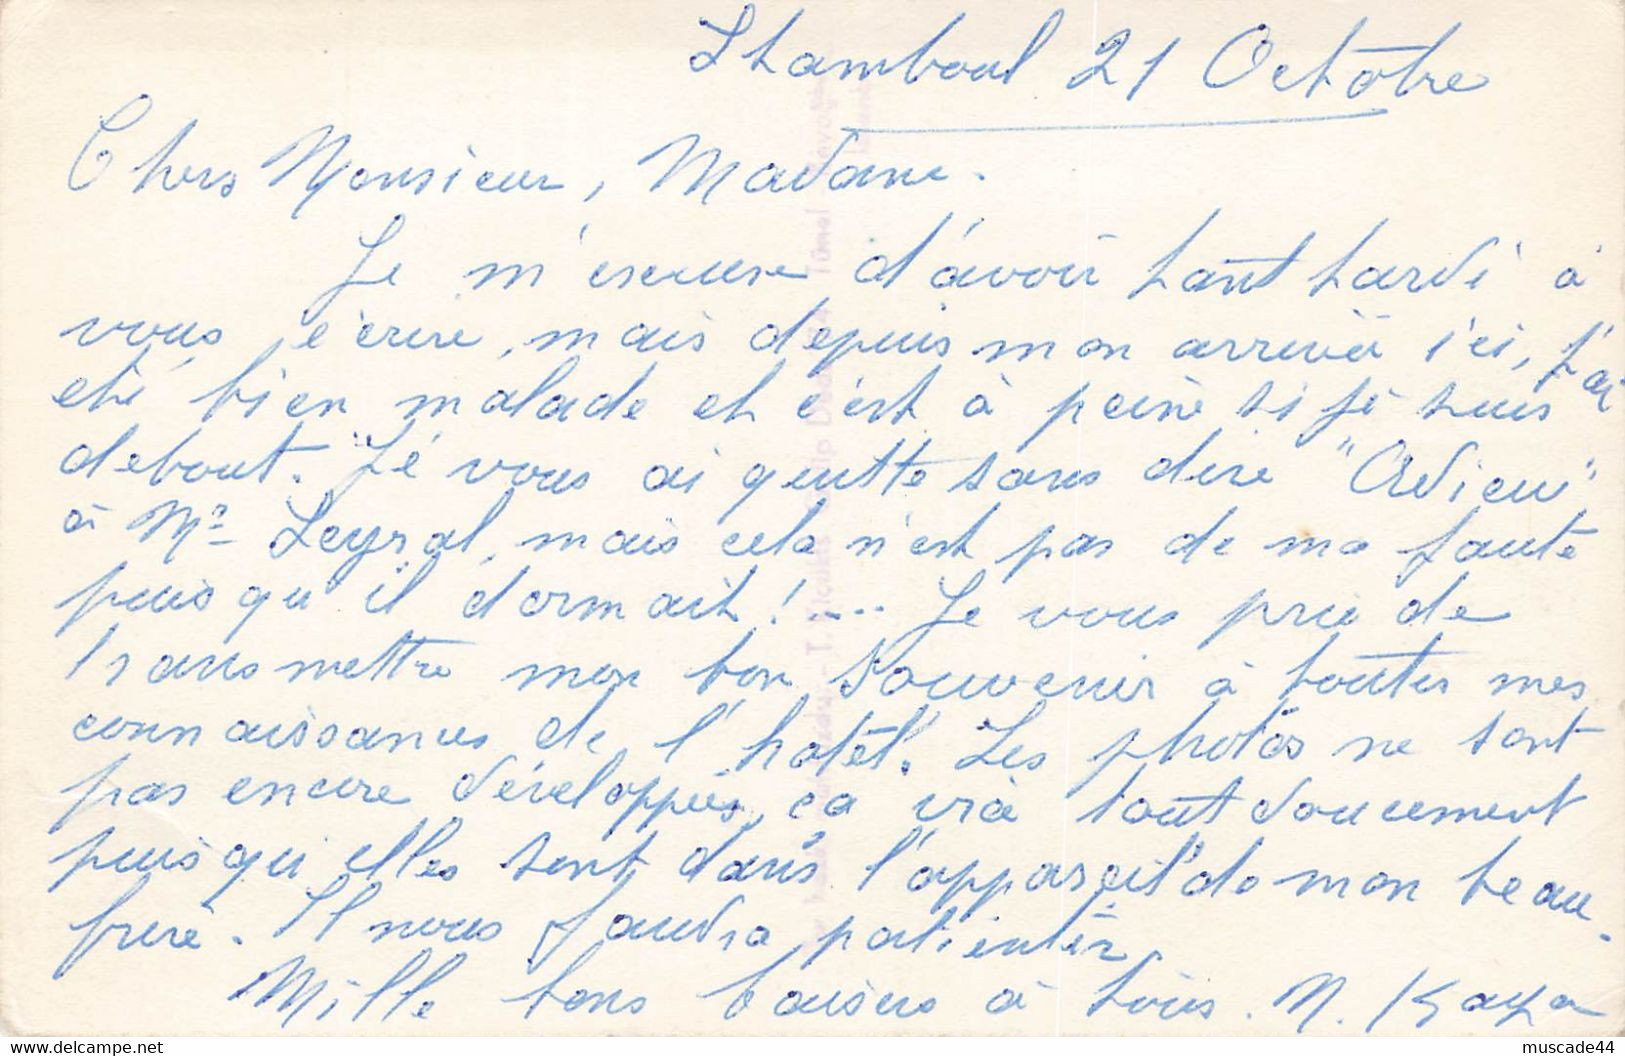 Istamboul 21 Octobre
Chers Monsieur, Madame.
Je m'escuse d'avoir tant tardé à
vous écrire, mais depuis mon arrivée ici, j'ai
été bien malade et c'est à peine si je suis
debout. Je vous ai quitté sans dire "Adieu"
à Mr Leyral, mais cela n'est pas de ma faute
puisqu'il dormait!... Je vous prie de
transmettre mon bon souvenir à toutes mes
connaissances de l'hotel. Les photos ne sont
pas encore développées, ca ira tout doucement
puisqu'elles sont dans l'appareil de mon beau-
frère. Il nous faudra patienter.
Mille bons baisers à tous. N. Kaya
www.delcampe.net
muscade44